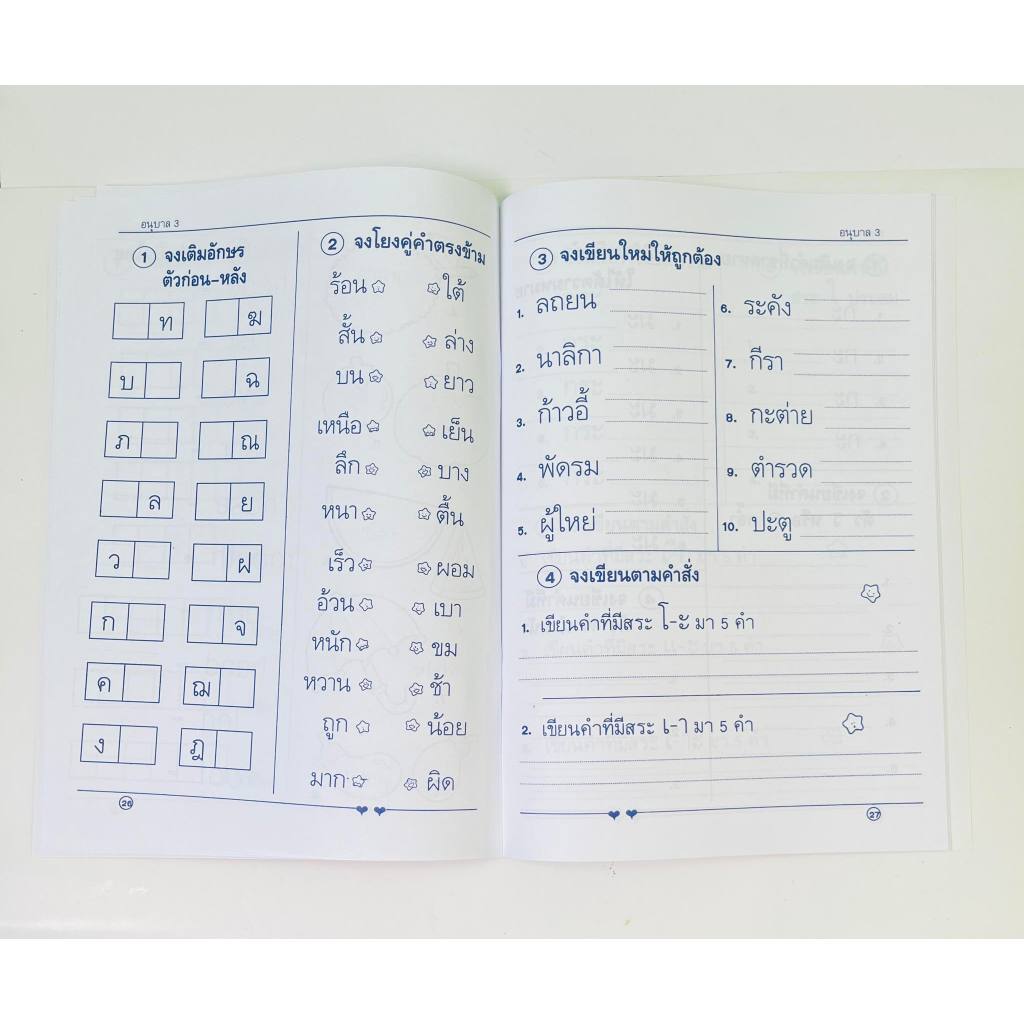 อนุบาล 3
1 จงเติมอักษร
ตัวก่อน-หลัง
ท ฆ
บ ฉ
ภ ณ
ล ย
ว ฝ
ก จ
ค ฌ
ง ฎ
2 จงโยงคู่คำตรงข้าม
ร้อน ใต้
สั้น ล่าง
บน ยาว
เหนือ เย็น
ลึก บาง
หนา ตื้น
เร็ว ผอม
อ้วน เบา
หนัก ขม
หวาน ช้า
ถูก น้อย
มาก ผิด
26
อนุบาล 3
3 จงเขียนใหม่ให้ถูกต้อง
1. ลถยน
2. นาลิกา
3. ก้าวอี้
4. พัดรม
5. ผู้ใหย่
6. ระคัง
7. กีรา
8. กะต่าย
9. ตำรวด
10. ปะตู
4 จงเขียนตามคำสั่ง
1. เขียนคำที่มีสระ โ-ะ มา 5 คำ
2. เขียนคำที่มีสระ เ-า มา 5 คำ
27